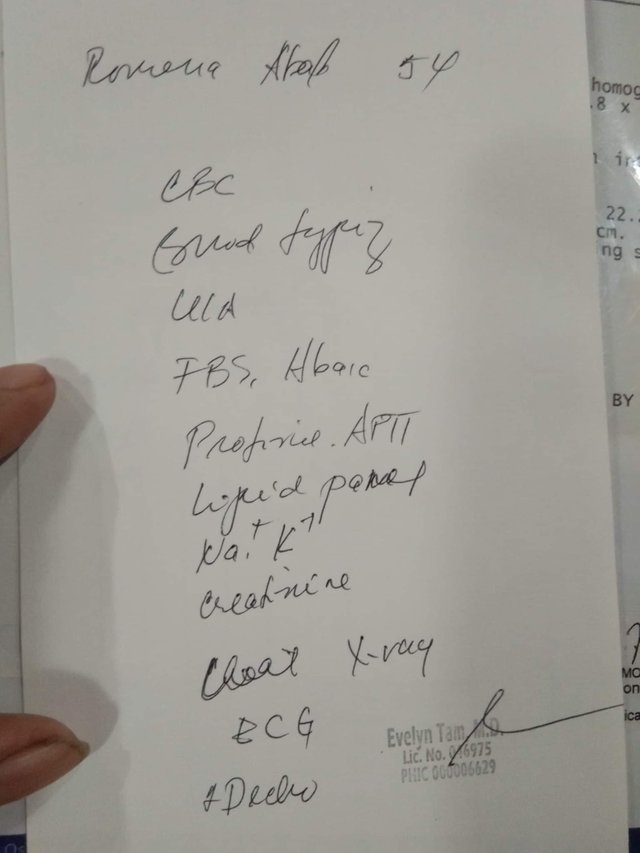 Romena Abab 54
CBC
Blood typing
U/A
FBS, Hba1c
Protime. APTT
Lipid panel
Na+ K+
Creatinine
Chest X-ray
ECG
2Decho
Evelyn Tam, M.D.
Lic. No. 016975
PHIC 000006629
homog
.8 x
22.
cm.
ng s
BY
MO
on
ica